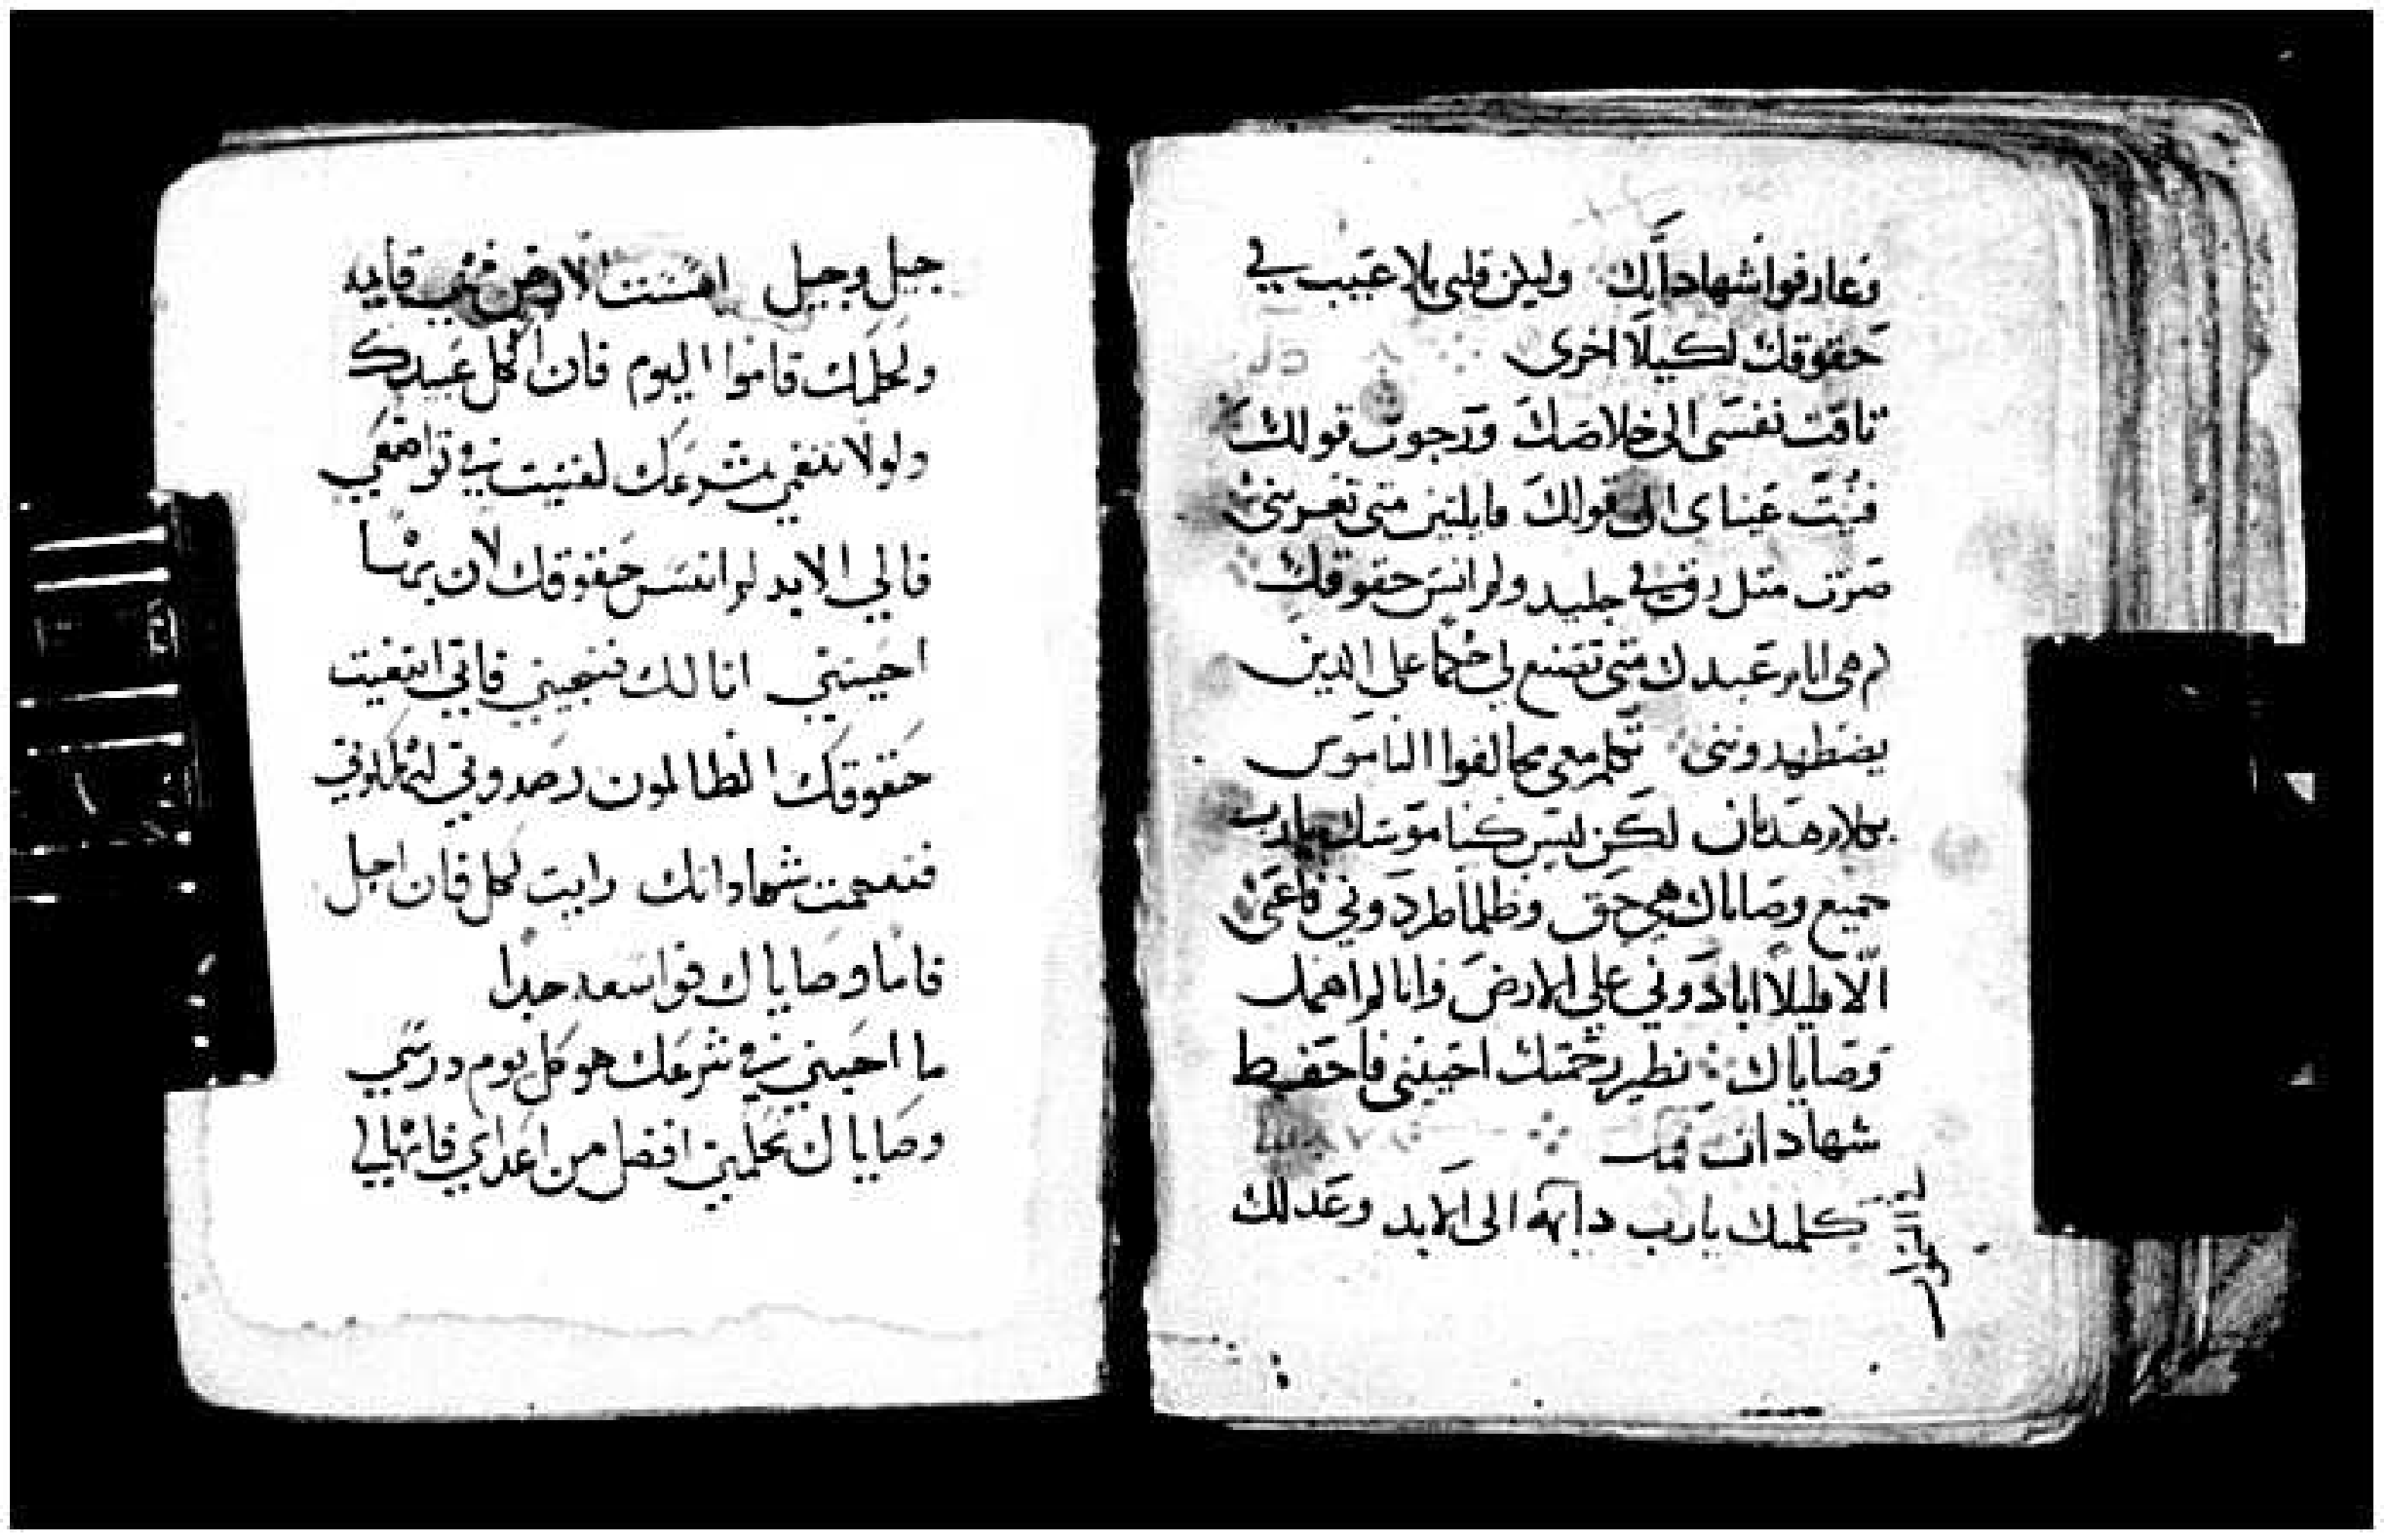 وعارفوا شهاداتك وليكن قلبي بلا عيب في
حقوقك لكيلا اخزى
تاقت نفسي الى خلاصك ورجوت قولك
فنيت عيناي الى قولك قايلتين متى تعزيني
صرت متل زق في جليد ولم انس حقوقك
كم هي ايام عبدك متى تصنع لي حكما على الدين
يضطهدونني تكلم معي مخالفوا الناموس
بكلام هديان لكن ليس كناموسك يارب
جميع وصاياك هي حق وظلما طردوني فاعني
الا قليلا ابادوني على الارض وانا لم اهمل
وصاياك نظير رحمتك احييني فاحفيظ
شهادات فمك
كلمتك يارب دايمة الى الابد وعدلك
جيل وجيل اسست الارض فهي قايمه
ولحكمك قاموا اليوم فان الكل عبيدك
ولولا تنغمي بشرعك لفنيت في تواضعي
فالي الابد لم انس حقوقك لان بها
احييتني انا لك فنجيني فاني ابتغيت
حقوقك الظالمون رصدوني ليهلكوني
فتفهمت شهاداتك رايت لكل فان اجل
فاما وصاياك فواسعه جدا
ما احبني في شرعك هو كل يوم درسي
وصاياك تحكمني افضل من اعداي فانها لي